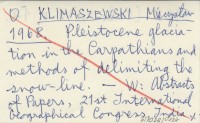 KLIMASZEWSKI Mieczysław
1968. Pleistocene glacia-
tion in the Carpathians and
methods of delimiting the
snow-line. - W: Abstracts
of Papers, 21st International
Geographical Congress, India